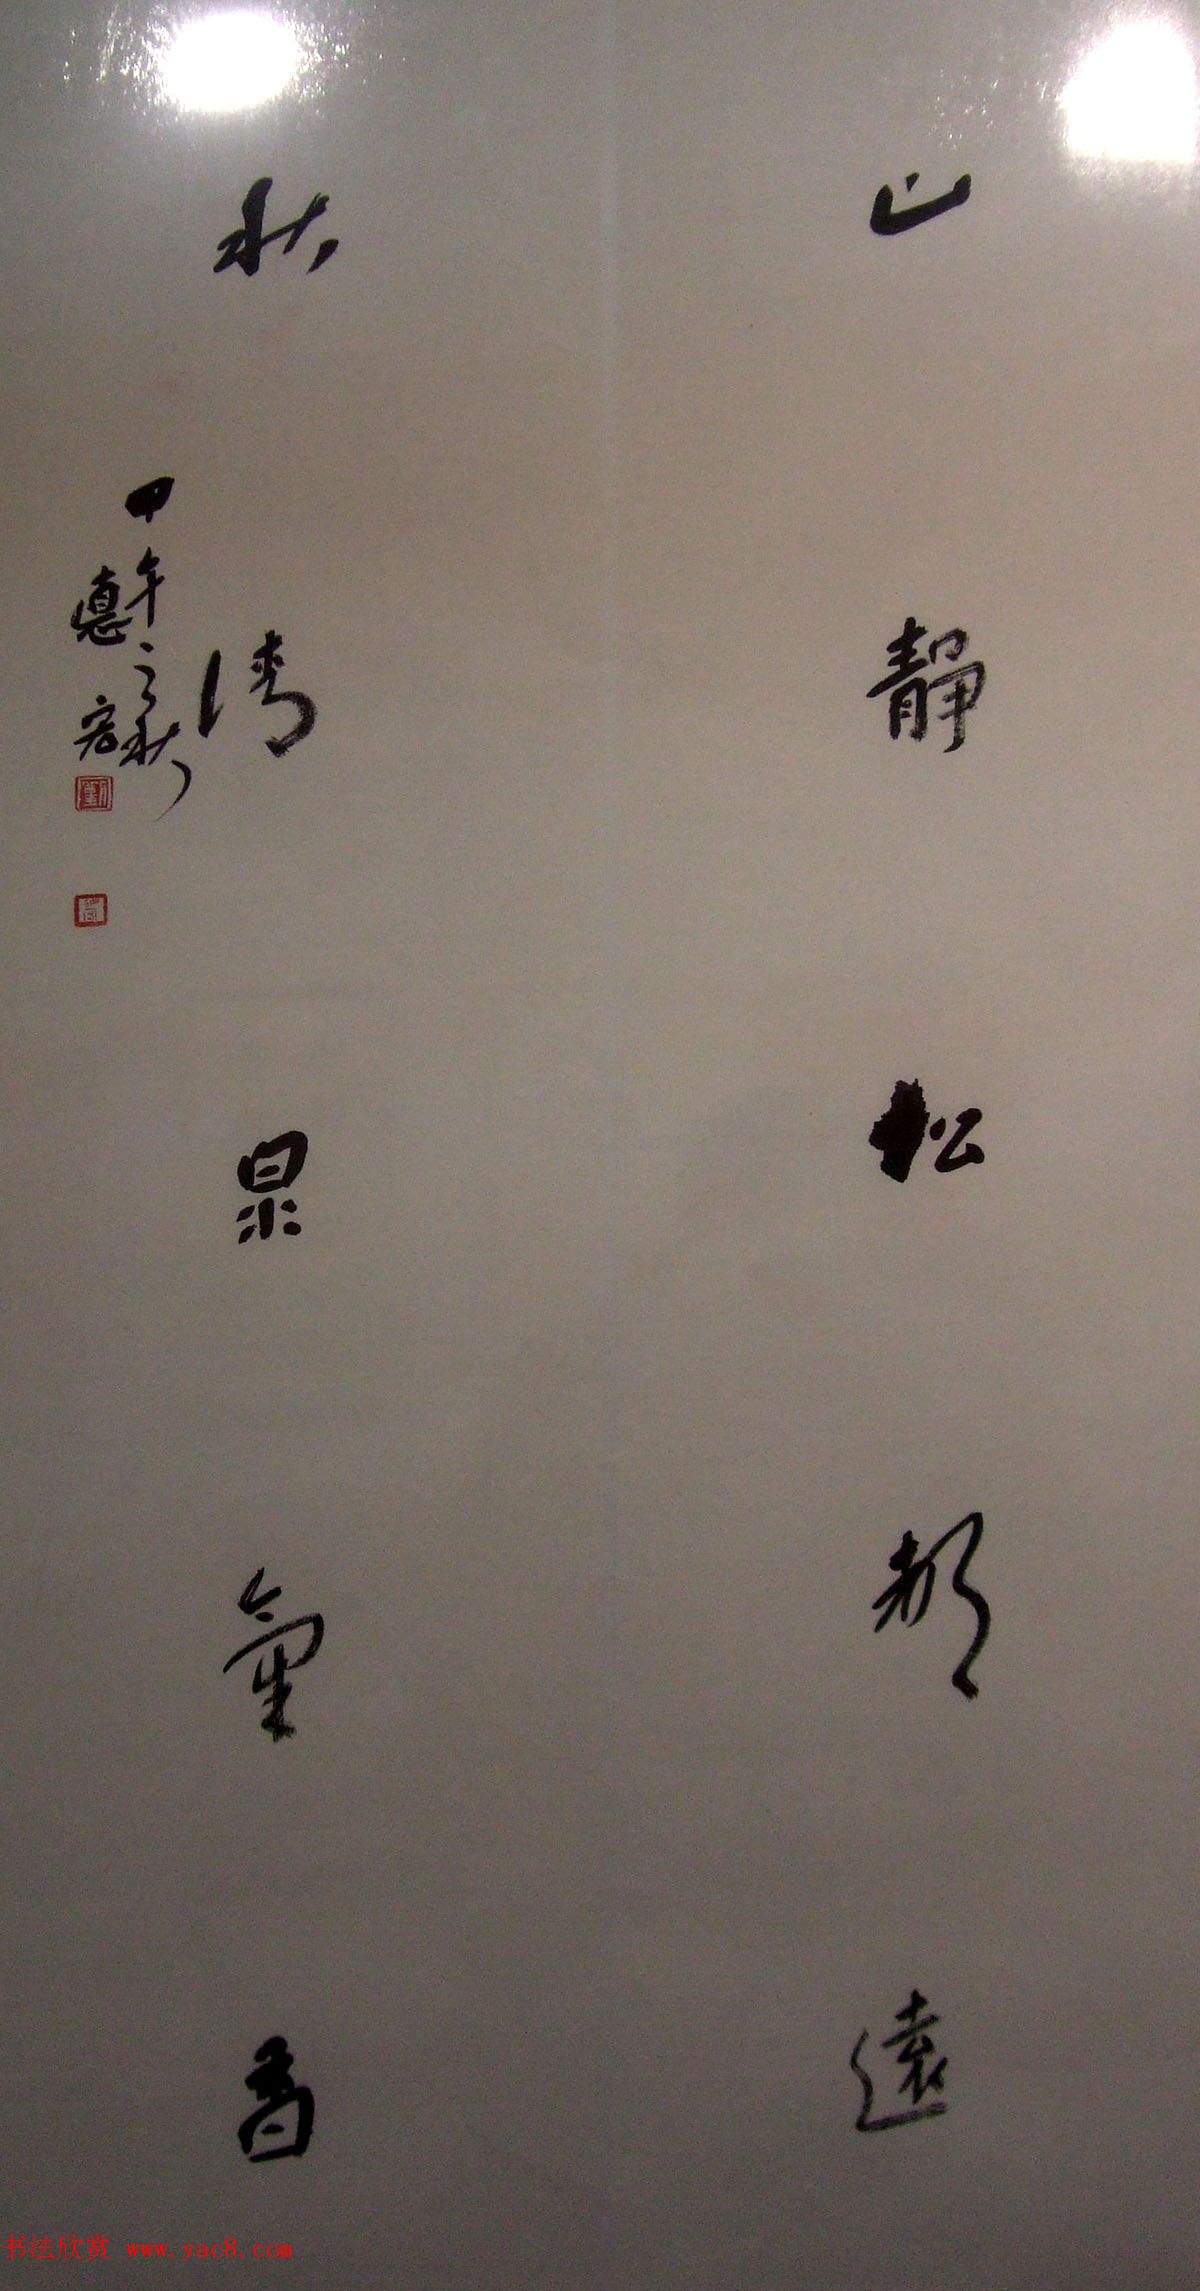 山靜松聲遠
秋清泉氣香
甲午之秋
德宏
书法欣赏 www.yac8.com